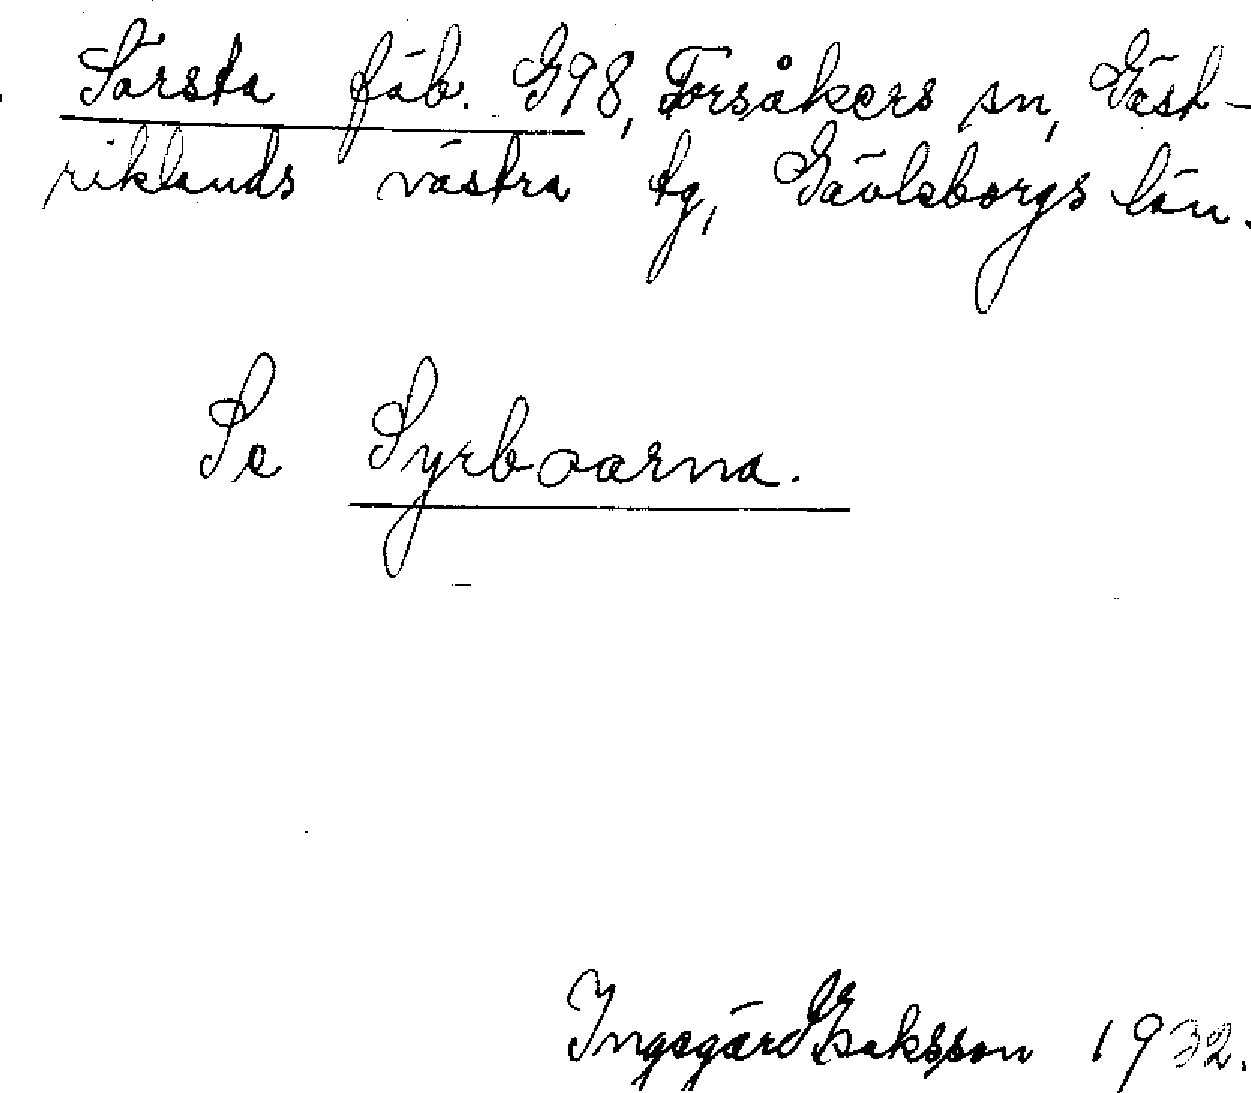 Sörsta fäb. G98, Torsåkers sn, Gäst-
riklands västra tg, Gävleborgs län.
Se Syrboarna.
Ingegärd Isaksson 1932.